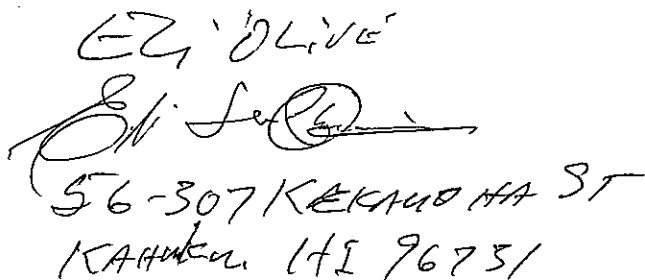 ELI OLIVE
Eli
56-307 KEKAUOHA ST
KAHUKU HI 96731